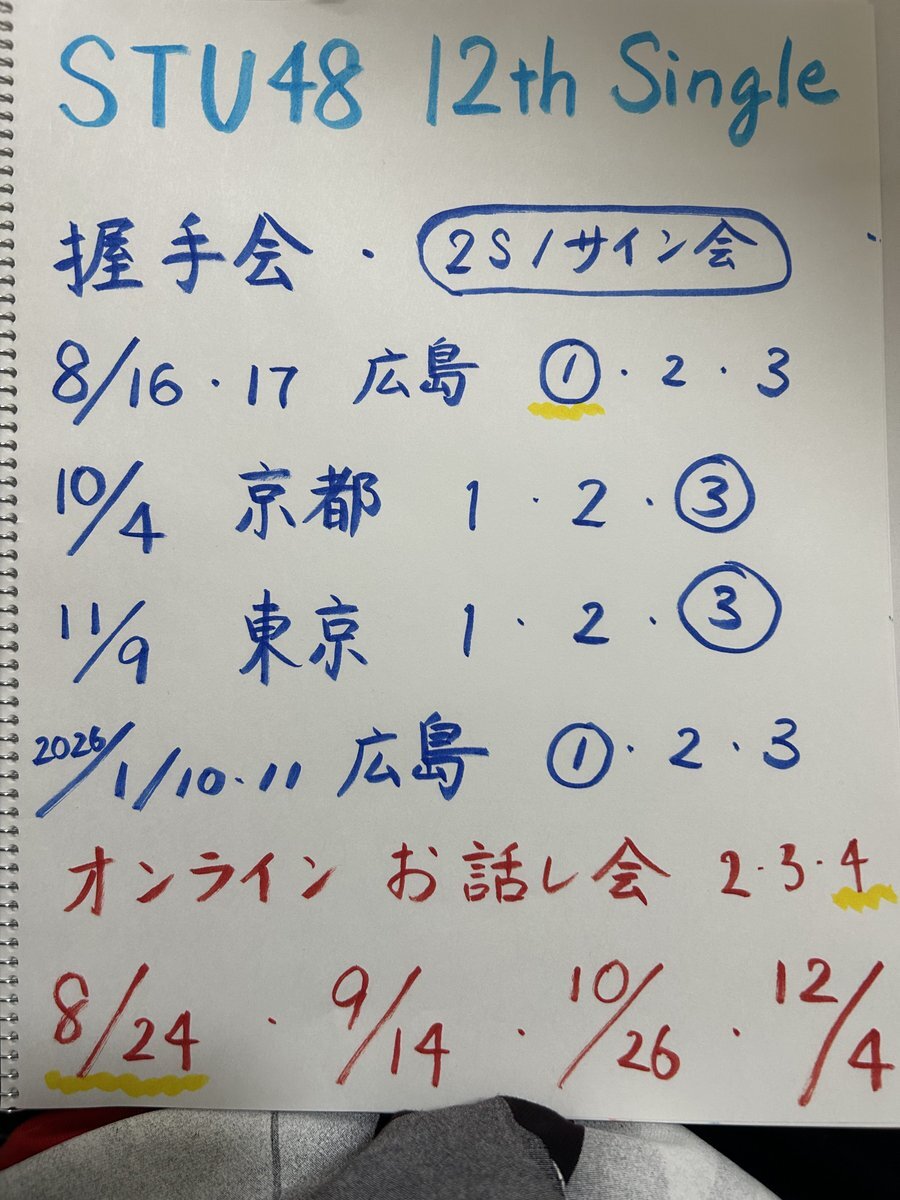 STU48 12th Single
握手会・ 2S/サイン会
8/16・17 広島 ①・2・3
10/4 京都 1・2・③
11/9 東京 1・2・③
2026/1/10・11 広島 ①・2・3
オンライン お話し会 2・3・4
8/24・9/14・10/26・12/4